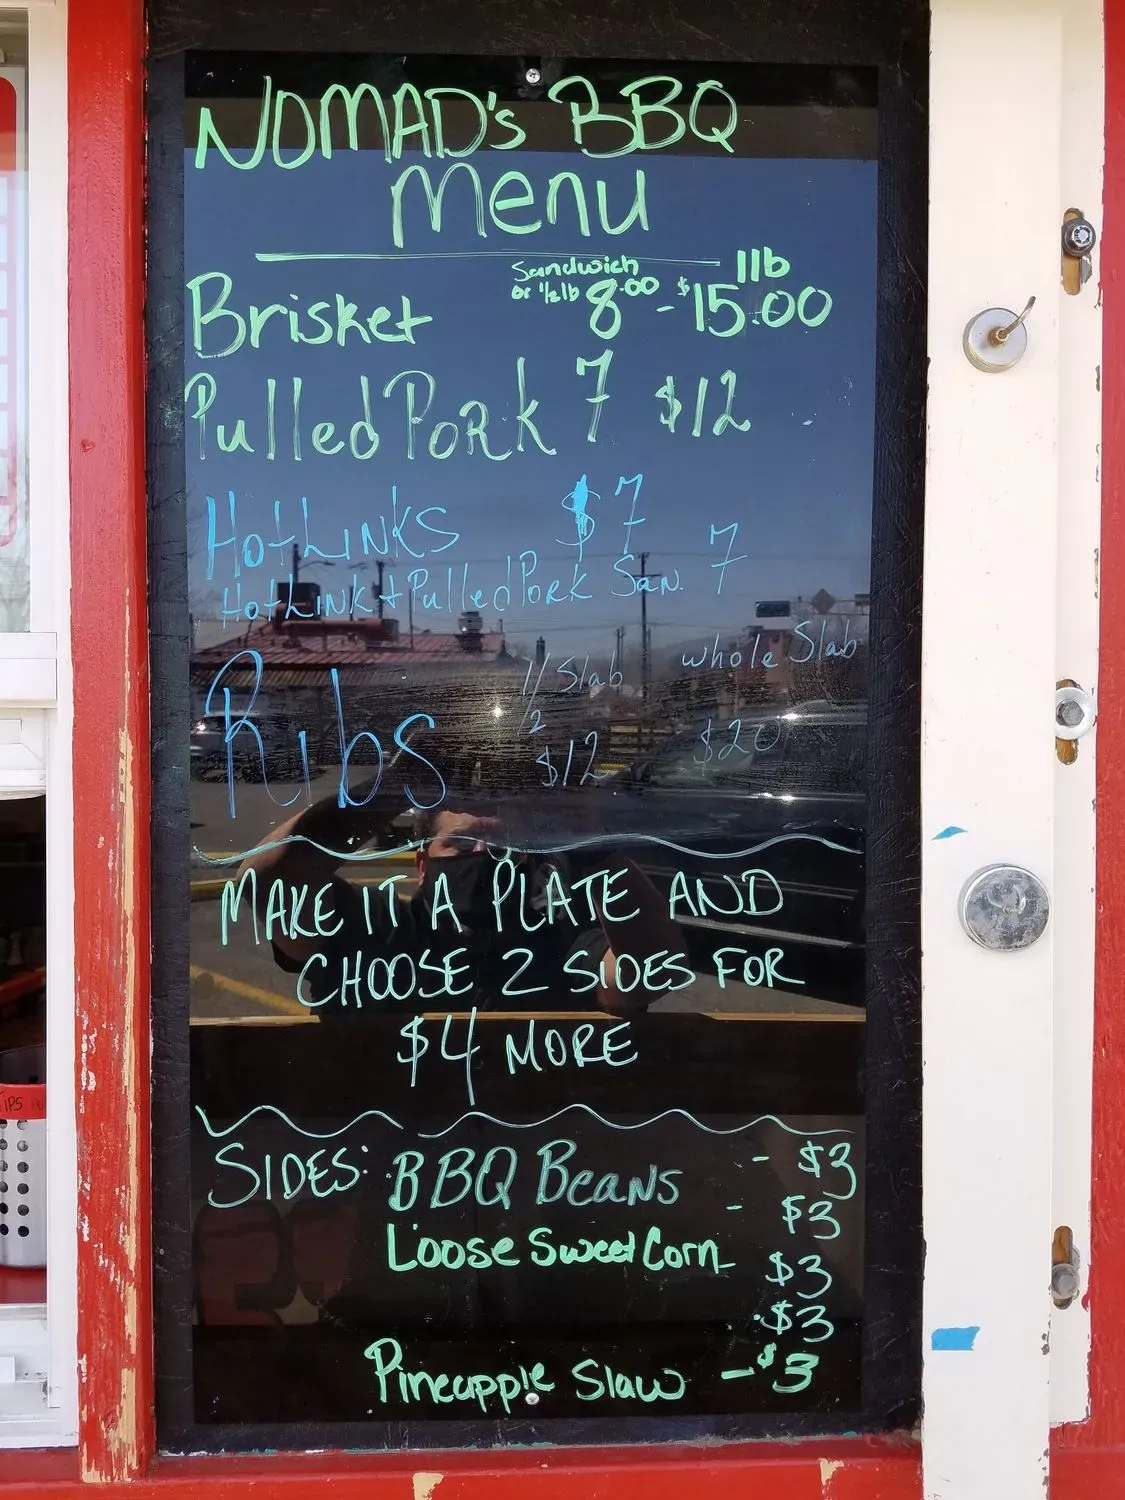 NOMAD's BBQ
Menu
Sandwich 1lb
or 1/2 lb
Brisket 8.00 - $15.00
Pulled Pork 7 $12
Hot Links $7
Hot Link + Pulled Pork San. 7
1/2 Slab whole Slab
Ribs $12 $20
MAKE IT A PLATE AND
CHOOSE 2 SIDES FOR
$4 MORE
SIDES: BBQ Beans - $3
- $3
Loose Sweet Corn - $3
$3
Pineapple Slaw - $3
TIPS